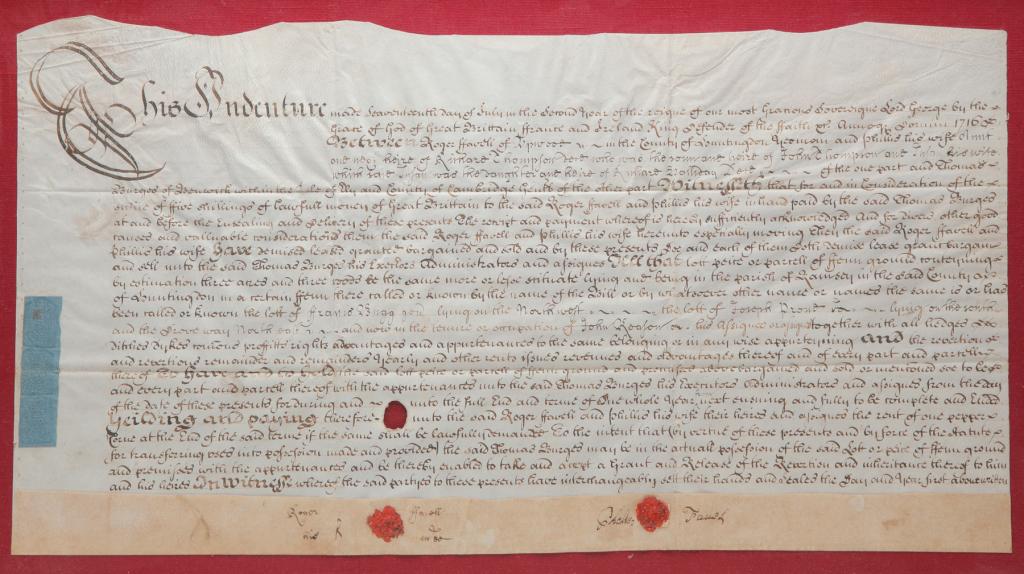 This Indenture made Seaventeenth day of July in the Second Year of the reigne of our most Gracious Sovereigne Lord George by the
Grace of God of Great Brittain ffrance and Ireland King Defender of the ffaith &c Annoq Domini 1716 &
Between Roger ffavell of Upwood in the County of Huntingdon Yeoman and Phillis his wife
one heire of Richard Thompson who was the sonn and heire of John Thompson and his wife
which was the daughter and heire of of the one part and Thomas
Burges of within the Isle of Ely and County of Cambridge Gent of the other part Witnesseth that for and in Consideration of the
sume of ffive shillings of lawfull money of Great Brittain to the said Roger ffavell and Phillis his wife in hand paid by the said Thomas Burges
at and before the Ensealing and delivery of these presents the receipt and payment whereof is hereby sufficiently acknowledged And for divers other good
causes and valluable considerations them the said Roger ffavell and Phillis his wife hereunto especially moving They the said Roger ffavell and
Phillis his wife Have demised leased granted bargained and sold and by these presents Doe and each of them Doth demise lease grant bargain
and sell unto the said Thomas Burges his Executors Administrators and assignes All that lott peice or parcell of ffenn ground conteyning
by estimation three acres and three roods be the same more or lesse scituate lying and being in the parish of Ramsey in the said County
of Huntingdon in a certain ffenn there called or known by the name of the or by whatsoever other name or names the same is or hath
been called or known the lott of Francis lying on the North west the lott of Joseph lying on the
and the Drove way North and now in the tenure or occupation of John his assignee or assignes together with all hedges
ditches dykes profitts rights advantages and appurtenances to the same belonging or in any wise apperteyning And the revertion
and revertions remainder and remainders Yearly and other rents issues revenues and advantages thereof and of every part and parcell
thereof To Have and to hold the said lott peice or parcell of ffenn ground and premisses above bargained and sold or mentioned soe to bee
and every part and parcell thereof with the appurtenances unto the said Thomas Burges his Executors Administrators and assignes from the day
of the date of these presents for during and unto the full End and terme of One whole Year next ensuing and fully to be complete and Ended
Yeilding and paying therefore unto the said Roger ffavell and Phillis his wife their heires and assignes the rent of one pepper
corne at the End of the said terme if the same shall be lawfully demanded To the intent that by vertue of these presents and by force of the statute
for transferring uses into possession made and provided the said Thomas Burges may be in the actuall possession of the said Lot or peice of ffenn ground
and premisses with the appurtenances and be thereby enabled to take and accept a Grant and Release of the Revertion and inheritance thereof to him
and his heires In Witness whereof the said parties to these presents have interchangeably sett their hands and seales the Day and Year first above written
Roger ffavell
his